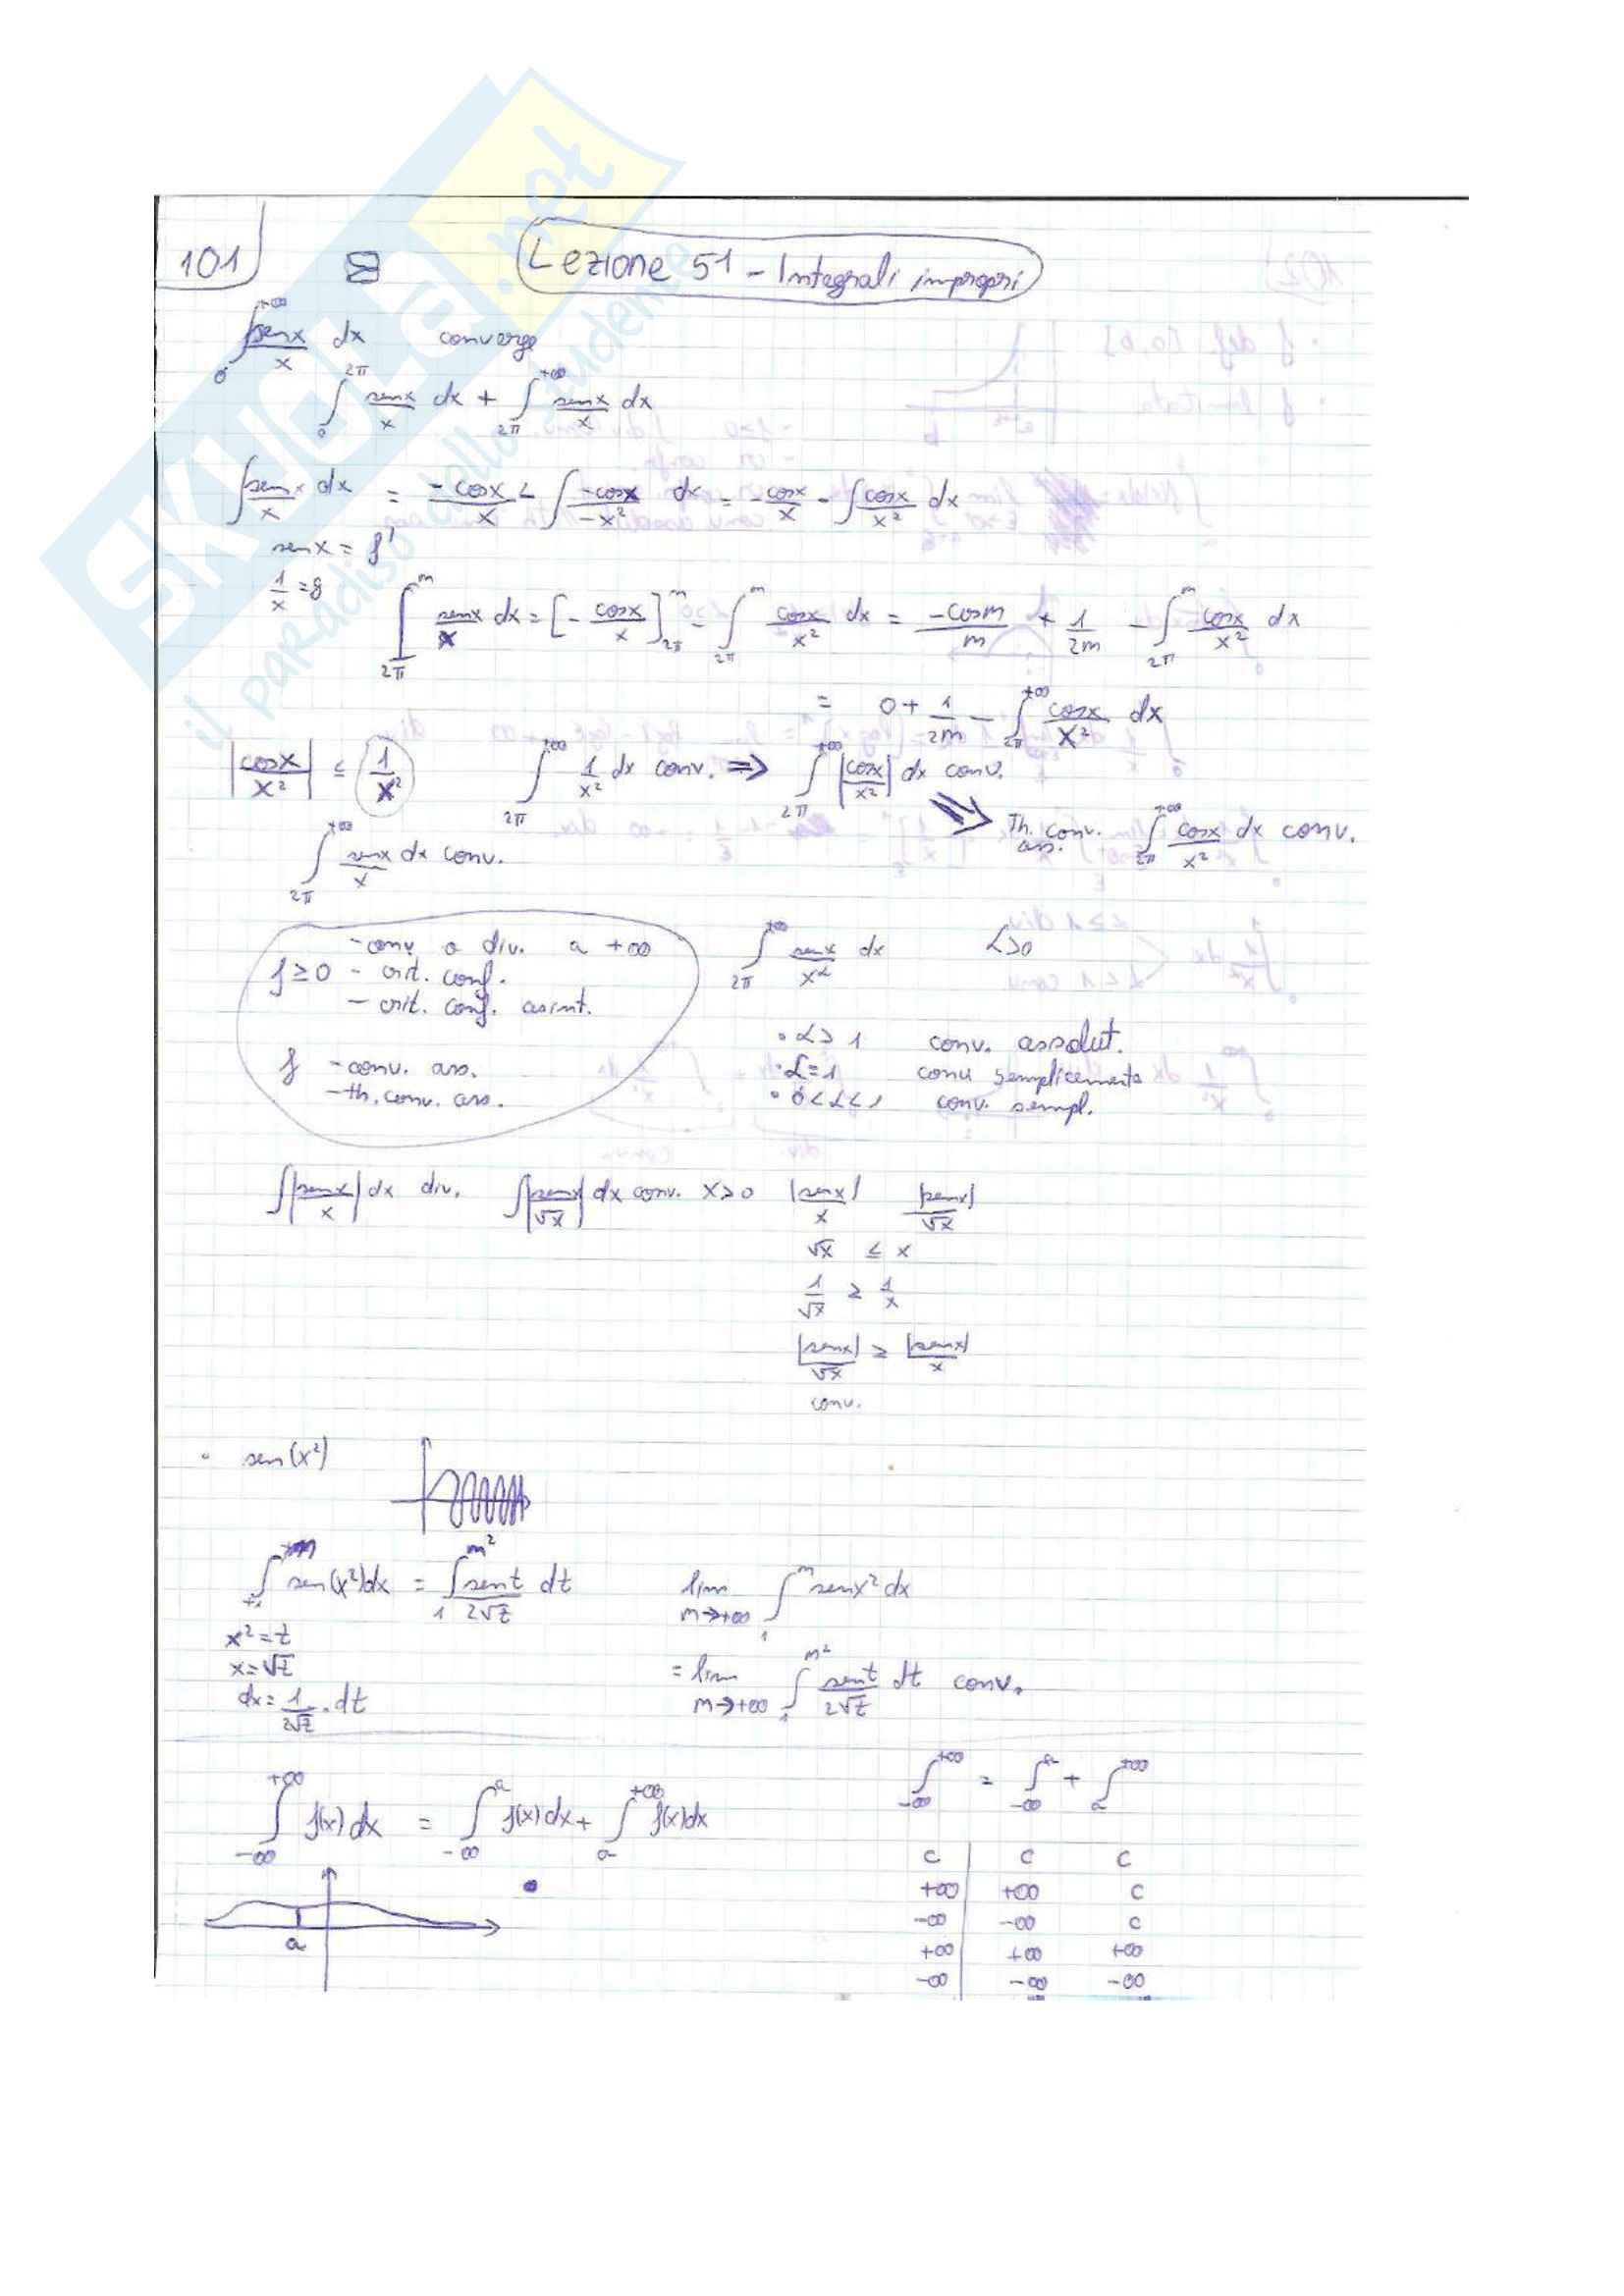 101 B Lezione 51 - Integrali impropri
∫₀^{+∞} senx/x dx converge
∫₀^{2π} senx/x dx + ∫_{2π}^{+∞} senx/x dx
∫ senx/x dx = -cosx/x - ∫ -cosx/-x² dx = -cosx/x - ∫ cosx/x² dx
senx = f'
1/x = g
∫_{2π}^{m} senx/x dx = [-cosx/x]_{2π}^{m} - ∫_{2π}^{m} cosx/x² dx = -cosm/m + 1/2π - ∫_{2π}^{m} cosx/x² dx
= 0 + 1/2π - ∫_{2π}^{+∞} cosx/x² dx
|cosx/x²| ≤ 1/x² ∫_{2π}^{+∞} 1/x² dx conv. ⇒ ∫_{2π}^{+∞} |cosx/x²| dx conv.
⇒ Th. conv. ass. ∫_{2π}^{+∞} cosx/x² dx conv.
∫_{2π}^{+∞} senx/x dx conv.
- conv. o div. a +∞
f ≥ 0 - crit. conf.
- crit. conf. asint.
f - conv. ass.
- th. conv. ass.
∫_{2π}^{+∞} senx/x^α dx α>0
• α > 1 conv. assolut.
• α = 1 conv semplicemente
• 0 < α < 1 conv. sempl.
∫|senx/x| dx div. ∫|senx/√x| dx conv. x>0 |senx|/x |senx|/√x
√x ≤ x
1/√x ≥ 1/x
|senx|/√x ≥ |senx|/x
conv.
• sen(x²)
∫_{+1}^{+m} sen(x²)dx = ∫_1^{m²} sent/2√t dt
x² = t
x = √t
dx = 1/2√t · dt
lim_{m→+∞} ∫_1^m senx² dx
= lim_{m→+∞} ∫_1^{m²} sent/2√t dt conv.
∫_{-∞}^{+∞} f(x)dx = ∫_{-∞}^{a} f(x)dx + ∫_a^{+∞} f(x)dx
a
∫_{-∞}^{+∞} = ∫_{-∞}^{a} + ∫_a^{+∞}
C | C C
+∞ | +∞ C
-∞ | -∞ C
+∞ | +∞ +∞
-∞ | -∞ -∞
SKUOLA.net
il paradiso dello studente